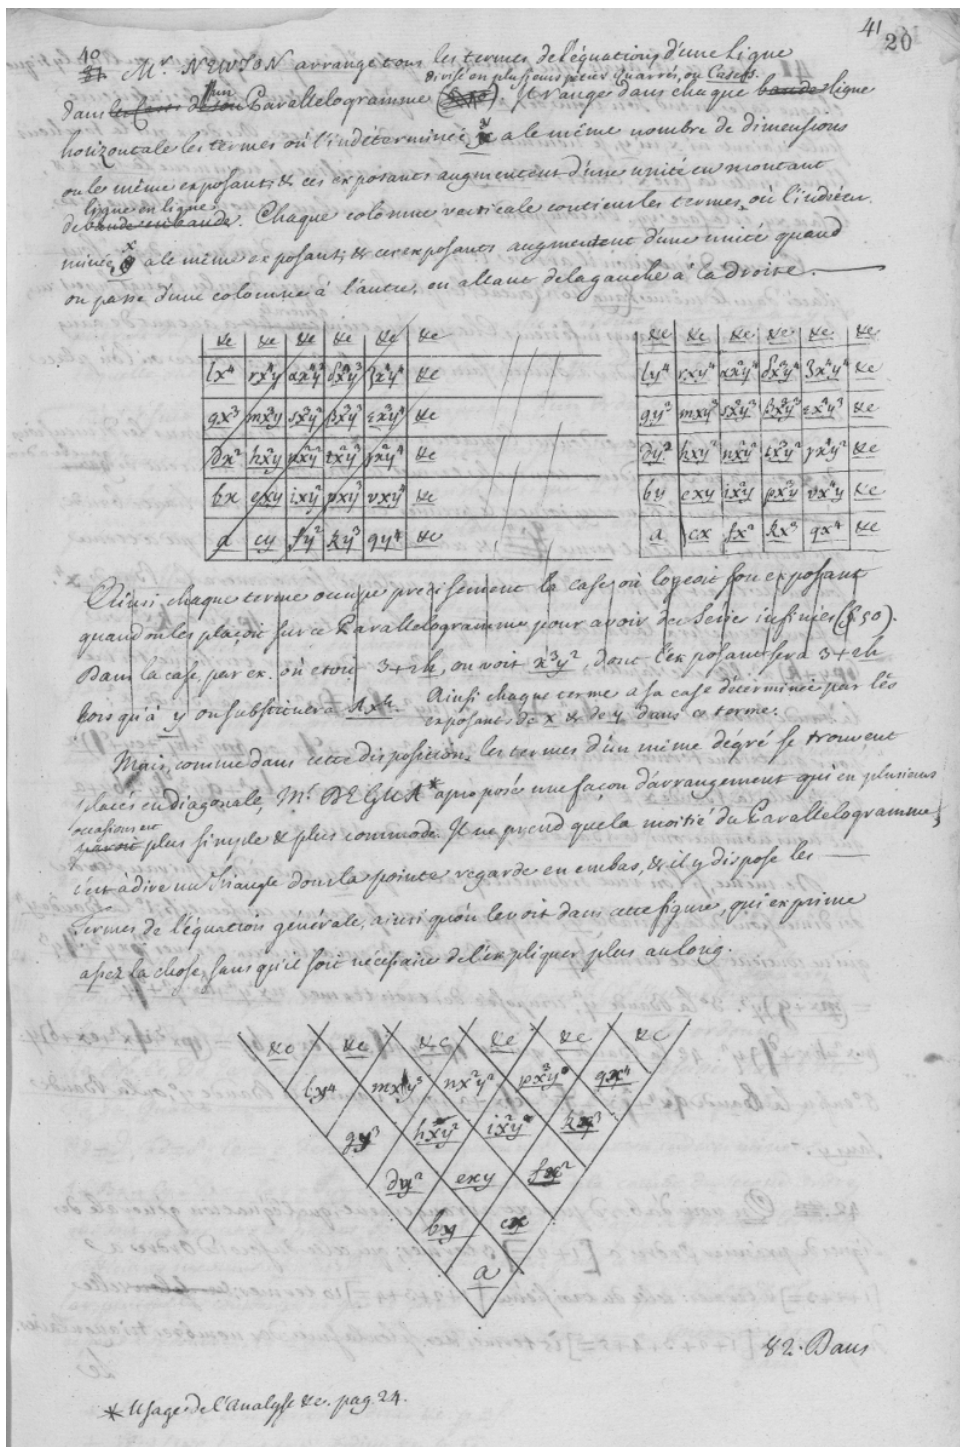 41
20
40
31. Mr. NEWTON arrange tous les termes de l'équation d'une ligne
divisé en plusieurs petits quarrés, ou Cases.
dans les cases de son d'un Parallelogramme. Il range dans chaque bande ligne
horizontale les termes où l'indéterminée y a le même nombre de dimensions
ou le même exposant; & ces exposants augmentent d'une unité en montant
ligne en ligne
de bande en bande. Chaque colomne verticale contient les termes, où l'indéter-
minée x a le même exposant; & ces exposants augmentent d'une unité quand
on passe d'une colomne à l'autre, en allant de la gauche à la droite.
&c &c &c &c &c &c
lx⁴ rx⁴y αx⁴y² δx⁴y³ ζx⁴y⁴ &c
gx³ mx³y sx³y² βx³y³ εx³y⁴ &c
dx² hx²y nx²y² tx²y³ γx²y⁴ &c
bx exy ixy² pxy³ vxy⁴ &c
a cy fy² ky³ qy⁴ &c
&c &c &c &c &c &c
ly⁴ rxy⁴ αx²y⁴ δx³y⁴ ζx⁴y⁴ &c
gy³ mxy³ sx²y³ βx³y³ εx⁴y³ &c
dy² hxy² nx²y² tx³y² γx⁴y² &c
by exy ix²y px³y vx⁴y &c
a cx fx² kx³ qx⁴ &c
Ainsi chaque terme occupe précisément la case, où logeoit son exposant
quand on les plaçoit sur ce Parallelogramme, pour avoir des Series infinies (§.50).
Dans la case, par ex. où étoit 3+2h, on voit x³y², dont l'exposant sera 3+2h
lorsqu'à y on substituera Axh. Ainsi chaque terme a sa case déterminée par les
exposants de x & de y dans ce terme.
Mais, comme dans cette disposition, les termes d'un même dégré se trouvent
placés en diagonale, Mr. DE GUA* a proposé une façon d'arrangement qui en plusieurs
occasions est
plus simple & plus commode. Il ne prend que la moitié du Parallelogramme,
c'est à dire un Triangle dont la pointe regarde en embas, & il y dispose les
Termes de l'équation générale, ainsi qu'on le voit dans cette figure, qui exprime
assez la chose, sans qu'il soit nécessaire de l'expliquer plus au long.
&c &c &c &c &c &c
ly⁴ mxy³ nx²y² px³y qx⁴
gy³ hxy² ix²y kx³
dy² exy fx²
by cx
a
82. Dans
* Usage de l'Analyse &c. pag. 24.